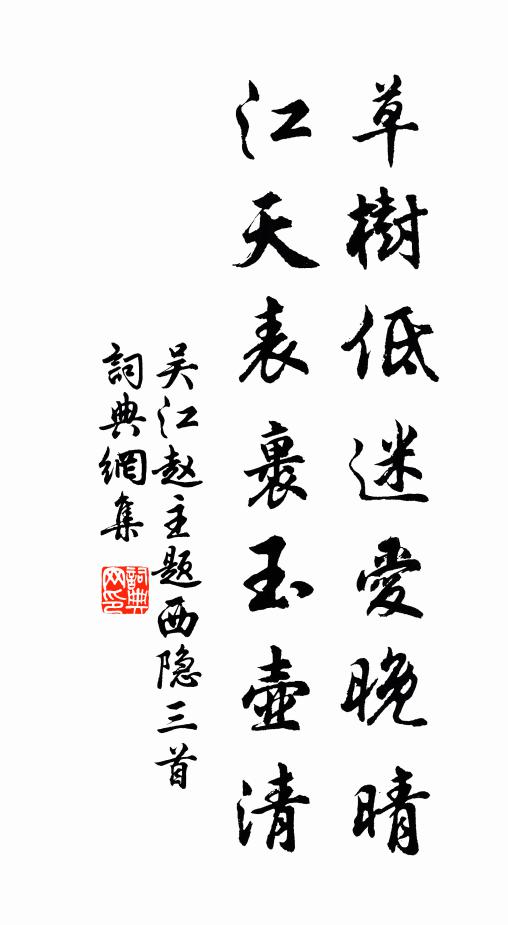 草樹低迷愛晚晴
江天表裹玉壺清
吴江赵主题西隐三首
詞典網集
詞典網印